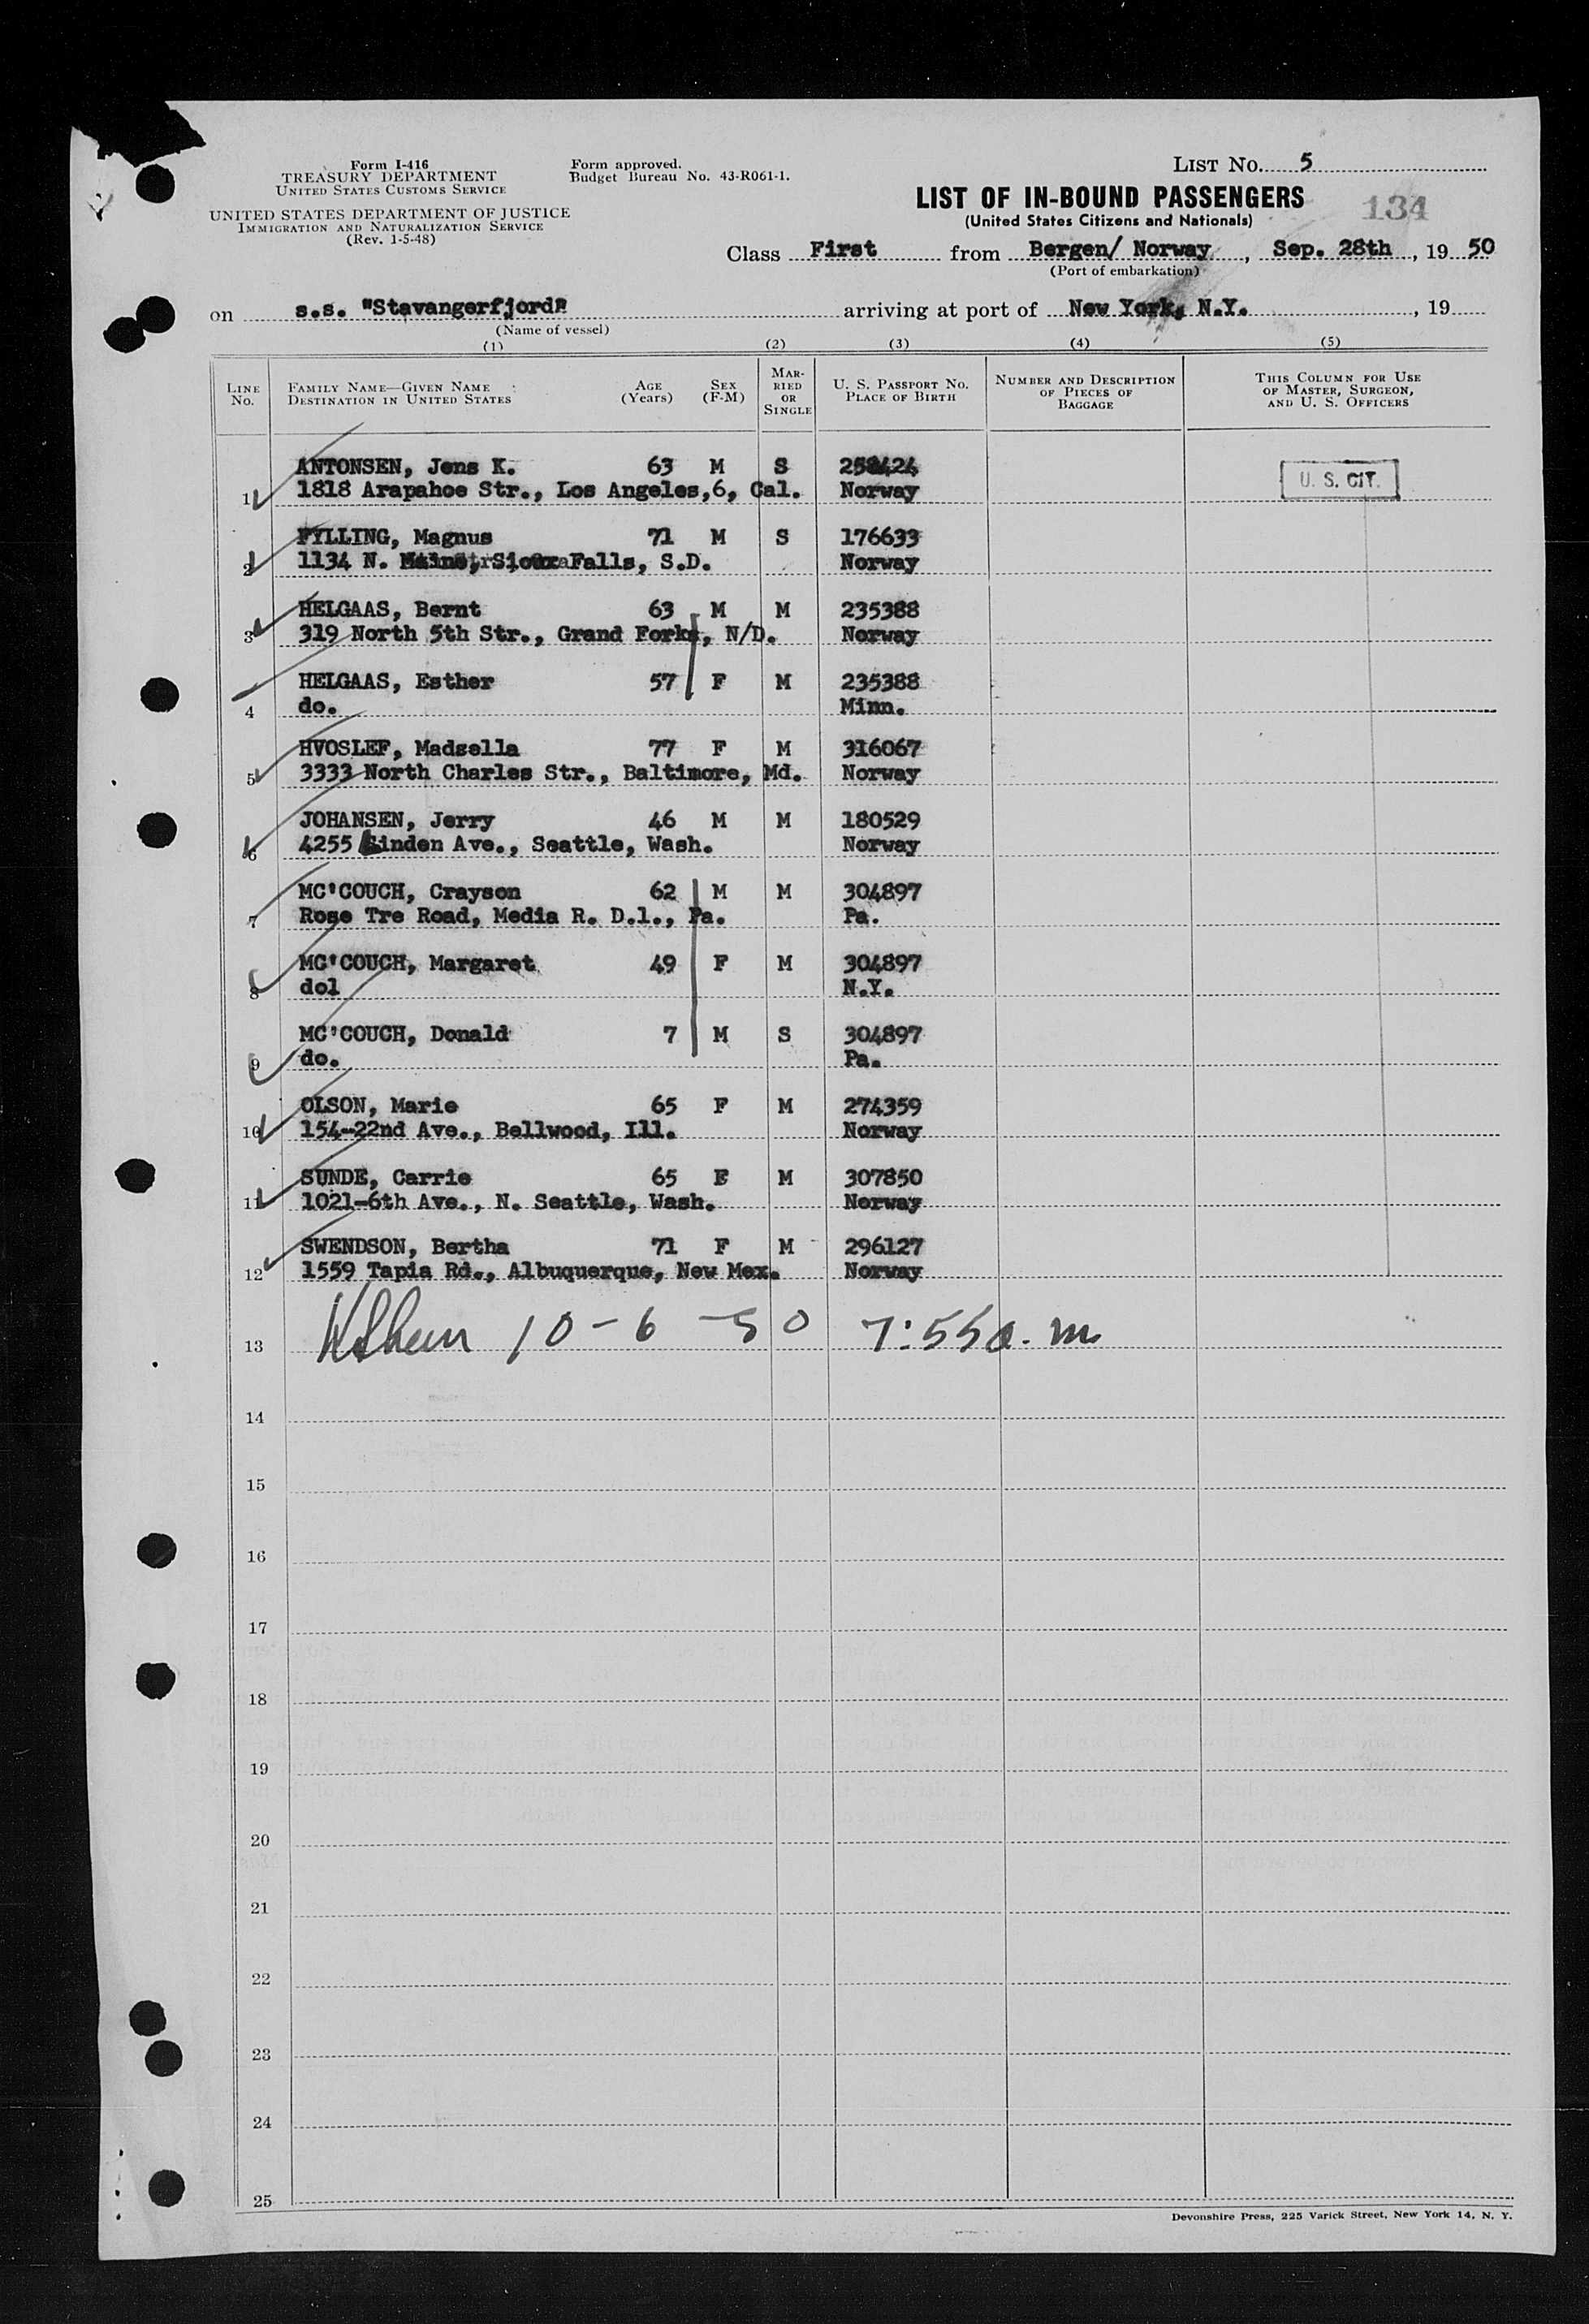 Form I-416
TREASURY DEPARTMENT
UNITED STATES CUSTOMS SERVICE
UNITED STATES DEPARTMENT OF JUSTICE
IMMIGRATION AND NATURALIZATION SERVICE
(Rev. 1-5-48)
Form approved.
Budget Bureau No. 43-R061-1.
LIST No. 5
LIST OF IN-BOUND PASSENGERS
(United States Citizens and Nationals)
134
Class First from Bergen/ Norway, Sep. 28th, 19 50
(Port of embarkation)
on s.s. "Stavangerfjord" arriving at port of New York, N.Y., 19
(Name of vessel)
(1) (2) (3) (4) (5)
LINE No. FAMILY NAME—GIVEN NAME DESTINATION IN UNITED STATES AGE (Years) SEX (F-M) MARRIED OR SINGLE U. S. PASSPORT NO. PLACE OF BIRTH NUMBER AND DESCRIPTION OF PIECES OF BAGGAGE THIS COLUMN FOR USE OF MASTER, SURGEON, AND U. S. OFFICERS
ANTONSEN, Jens K. 63 M S 258424
1 1818 Arapahoe Str., Los Angeles,6, Cal. Norway
U. S. CIT.
FYLLING, Magnus 71 M S 176633
2 1134 N. Sioux Falls, S.D. Norway
HELGAAS, Bernt 63 M M 235388
3 319 North 5th Str., Grand Forks, N/D. Norway
HELGAAS, Esther 57 F M 235388
4 do. Minn.
HVOSLEF, Madsella 77 F M 316067
5 3333 North Charles Str., Baltimore, Md. Norway
JOHANSEN, Jerry 46 M M 180529
6 4255 Linden Ave., Seattle, Wash. Norway
MC'COUCH, Crayson 62 M M 304897
7 Rose Tre Road, Media R. D.1., Pa. Pa.
MC'COUCH, Margaret 49 F M 304897
8 dol N.Y.
MC'COUCH, Donald 7 M S 304897
9 do. Pa.
OLSON, Marie 65 F M 274359
10 154-22nd Ave., Bellwood, Ill. Norway
SUNDE, Carrie 65 F M 307850
11 1021-6th Ave., N. Seattle, Wash. Norway
SWENDSON, Bertha 71 F M 296127
12 1559 Tapia Rd., Albuquerque, New Mex. Norway
13 10-6-50 7:55 a.m
14
15
16
17
18
19
20
21
22
23
24
25
Devonshire Press, 225 Varick Street, New York 14, N. Y.